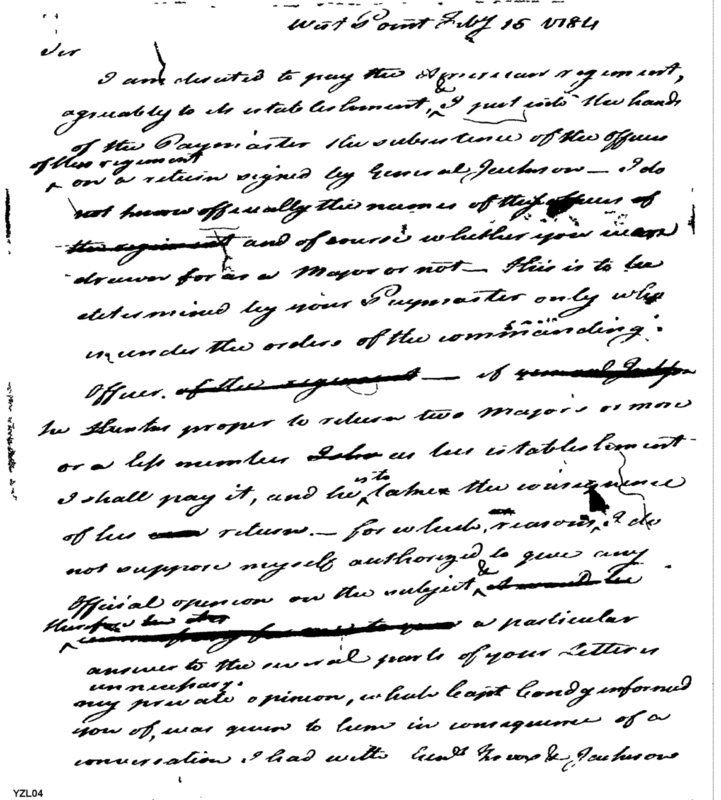 West Point Feby 15 1784
Sir
I am directed to pay the American regiment,
agreably to its establishment, & I put into the hands
of the Paymaster the subsistence of the Officers
of this regiment
on a return signed by General Jackson — I do
not know officially the names of the officers of
the regiment and of course whether you were
drawn for as a Major or not — this is to be
determined by your Paymaster only who
is under the orders of the commanding
Officer. of the regiment — if
he thinks proper to return two Majors or more
or a less number as his establishment
I shall pay it, and he is to take the consequence
of his return. — for which reasons, I do
not suppose myself authorized to give any
Official opinion on the subject &
therefore
a particular
answer to the several parts of your Letter is
unnecessary.
my private opinion, which Capt Condy informed
you of, was given to him in consequence of a
conversation I had with Genls Knox & Jackson
YZL04